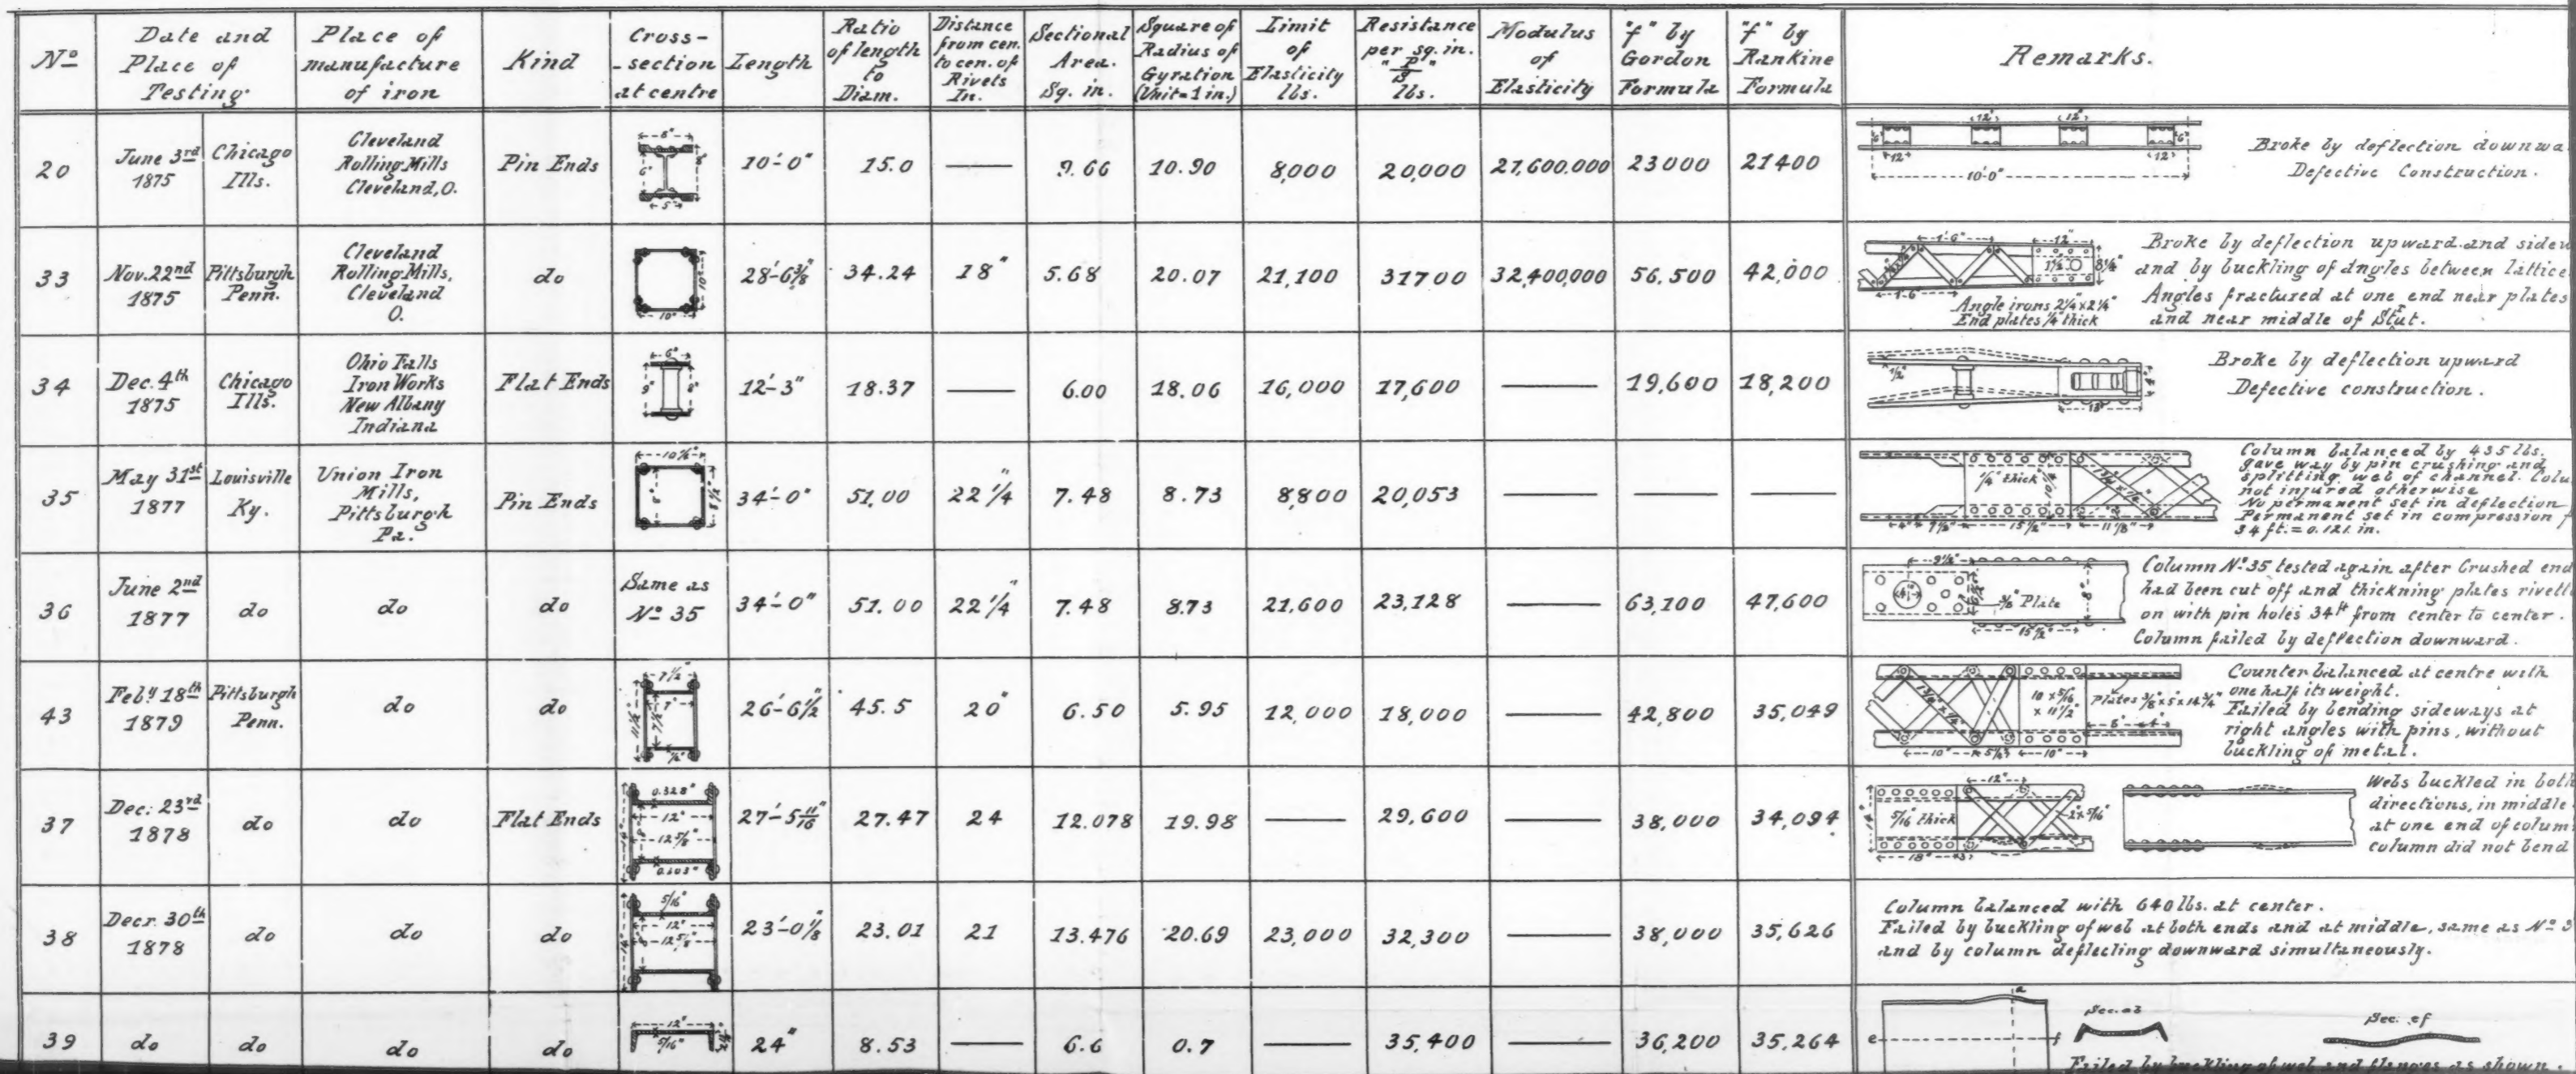 No Date and Place of Testing Place of manufacture of iron Kind Cross-section at centre Length Ratio of length to Diam. Distance from cen. to cen. of Rivets In. Sectional Area. Sq. in. Square of Radius of Gyration (Unit=1 in.) Limit of Elasticity lbs. Resistance per sq. in. "P/S" lbs. Modulus of Elasticity "f" by Gordon Formula "f" by Rankine Formula Remarks.
20 June 3rd 1875 Chicago Ills. Cleveland Rolling Mills Cleveland, O. Pin Ends 8" 6" 5" 10'-0" 15.0 — 9.66 10.90 8,000 20,000 21,600.000 23000 21400
12 12 6" 6" 12" 12 10'-0"
Broke by deflection downwa
Defective Construction.
33 Nov. 22nd 1875 Pittsburgh Penn. Cleveland Rolling Mills, Cleveland O. do 10" 10" 28'-6⅜" 34.24 18" 5.68 20.07 21,100 31700 32,400,000 56.500 42,000
1'-6" 12" 8¼" 1'-6"
Angle irons 2¼"x2¼"
End plates ¼" thick
Broke by deflection upward and sidew
and by buckling of angles between lattice
Angles fractured at one end near plates
and near middle of Stut.
34 Dec. 4th 1875 Chicago Ills. Ohio Falls Iron Works New Albany Indiana Flat Ends 6" 9" 8" 12'-3" 18.37 — 6.00 18.06 16,000 17,600 — 19,600 18,200
½" 13"
Broke by deflection upward
Defective construction.
35 May 31st 1877 Louisville Ky. Union Iron Mills, Pittsburgh Pa. Pin Ends 10½" 8" 8½" 34'-0" 51.00 22¼" 7.48 8.73 8800 20,053 — — —
¼" thick 4" 15½" 11⅞"
Column balanced by 435 lbs.
gave way by pin crushing and
splitting web of channel. Colu
not injured otherwise
No permanent set in deflection
Permanent set in compression f
34 ft. = 0.121 in.
36 June 2nd 1877 do do do Same as No 35 34'-0" 51.00 22¼" 7.48 8.73 21,600 23,128 — 63,100 47,600
9½" ⅜" Plate 15½" 8"
Column No. 35 tested again after Crushed end
had been cut off and thickning plates rivett
on with pin holes 34ft from center to center.
Column failed by deflection downward.
43 Feby 18th 1879 Pittsburgh Penn. do do 7½" 7" 11½" 7½" ¼" 26'-6½" 45.5 20" 6.50 5.95 12,000 18,000 — 42,800 35,049
10 x 5/16 x 11½" Plates ⅜"x5"x14¾" 10" 10"
Counter balanced at centre with
one half its weight.
Failed by bending sideways at
right angles with pins, without
buckling of metal.
37 Dec. 23rd 1878 do do Flat Ends 0.328" 12" 12⅝" 0.303" 27'-5 11/16" 27.47 24 12.078 19.98 — 29,600 — 38,000 34,094
12" 5/16" thick 2"x5/16" 18" 3"
Webs buckled in both
directions, in middle
at one end of colum
column did not bend
38 Decr. 30th 1878 do do do 5/16" 12" 12⅝" 23'-0⅛" 23.01 21 13.476 20.69 23,000 32,300 — 38,000 35,626
Column balanced with 640 lbs. at center.
Failed by buckling of web at both ends and at middle, same as No 3
and by column deflecting downward simultaneously.
39 do do do do 12" 5/16" 24" 8.53 — 6.6 0.7 — 35,400 — 36,200 35,264
a e f Sec. ab Sec. ef
Failed by buckling of web and flanges as shown.